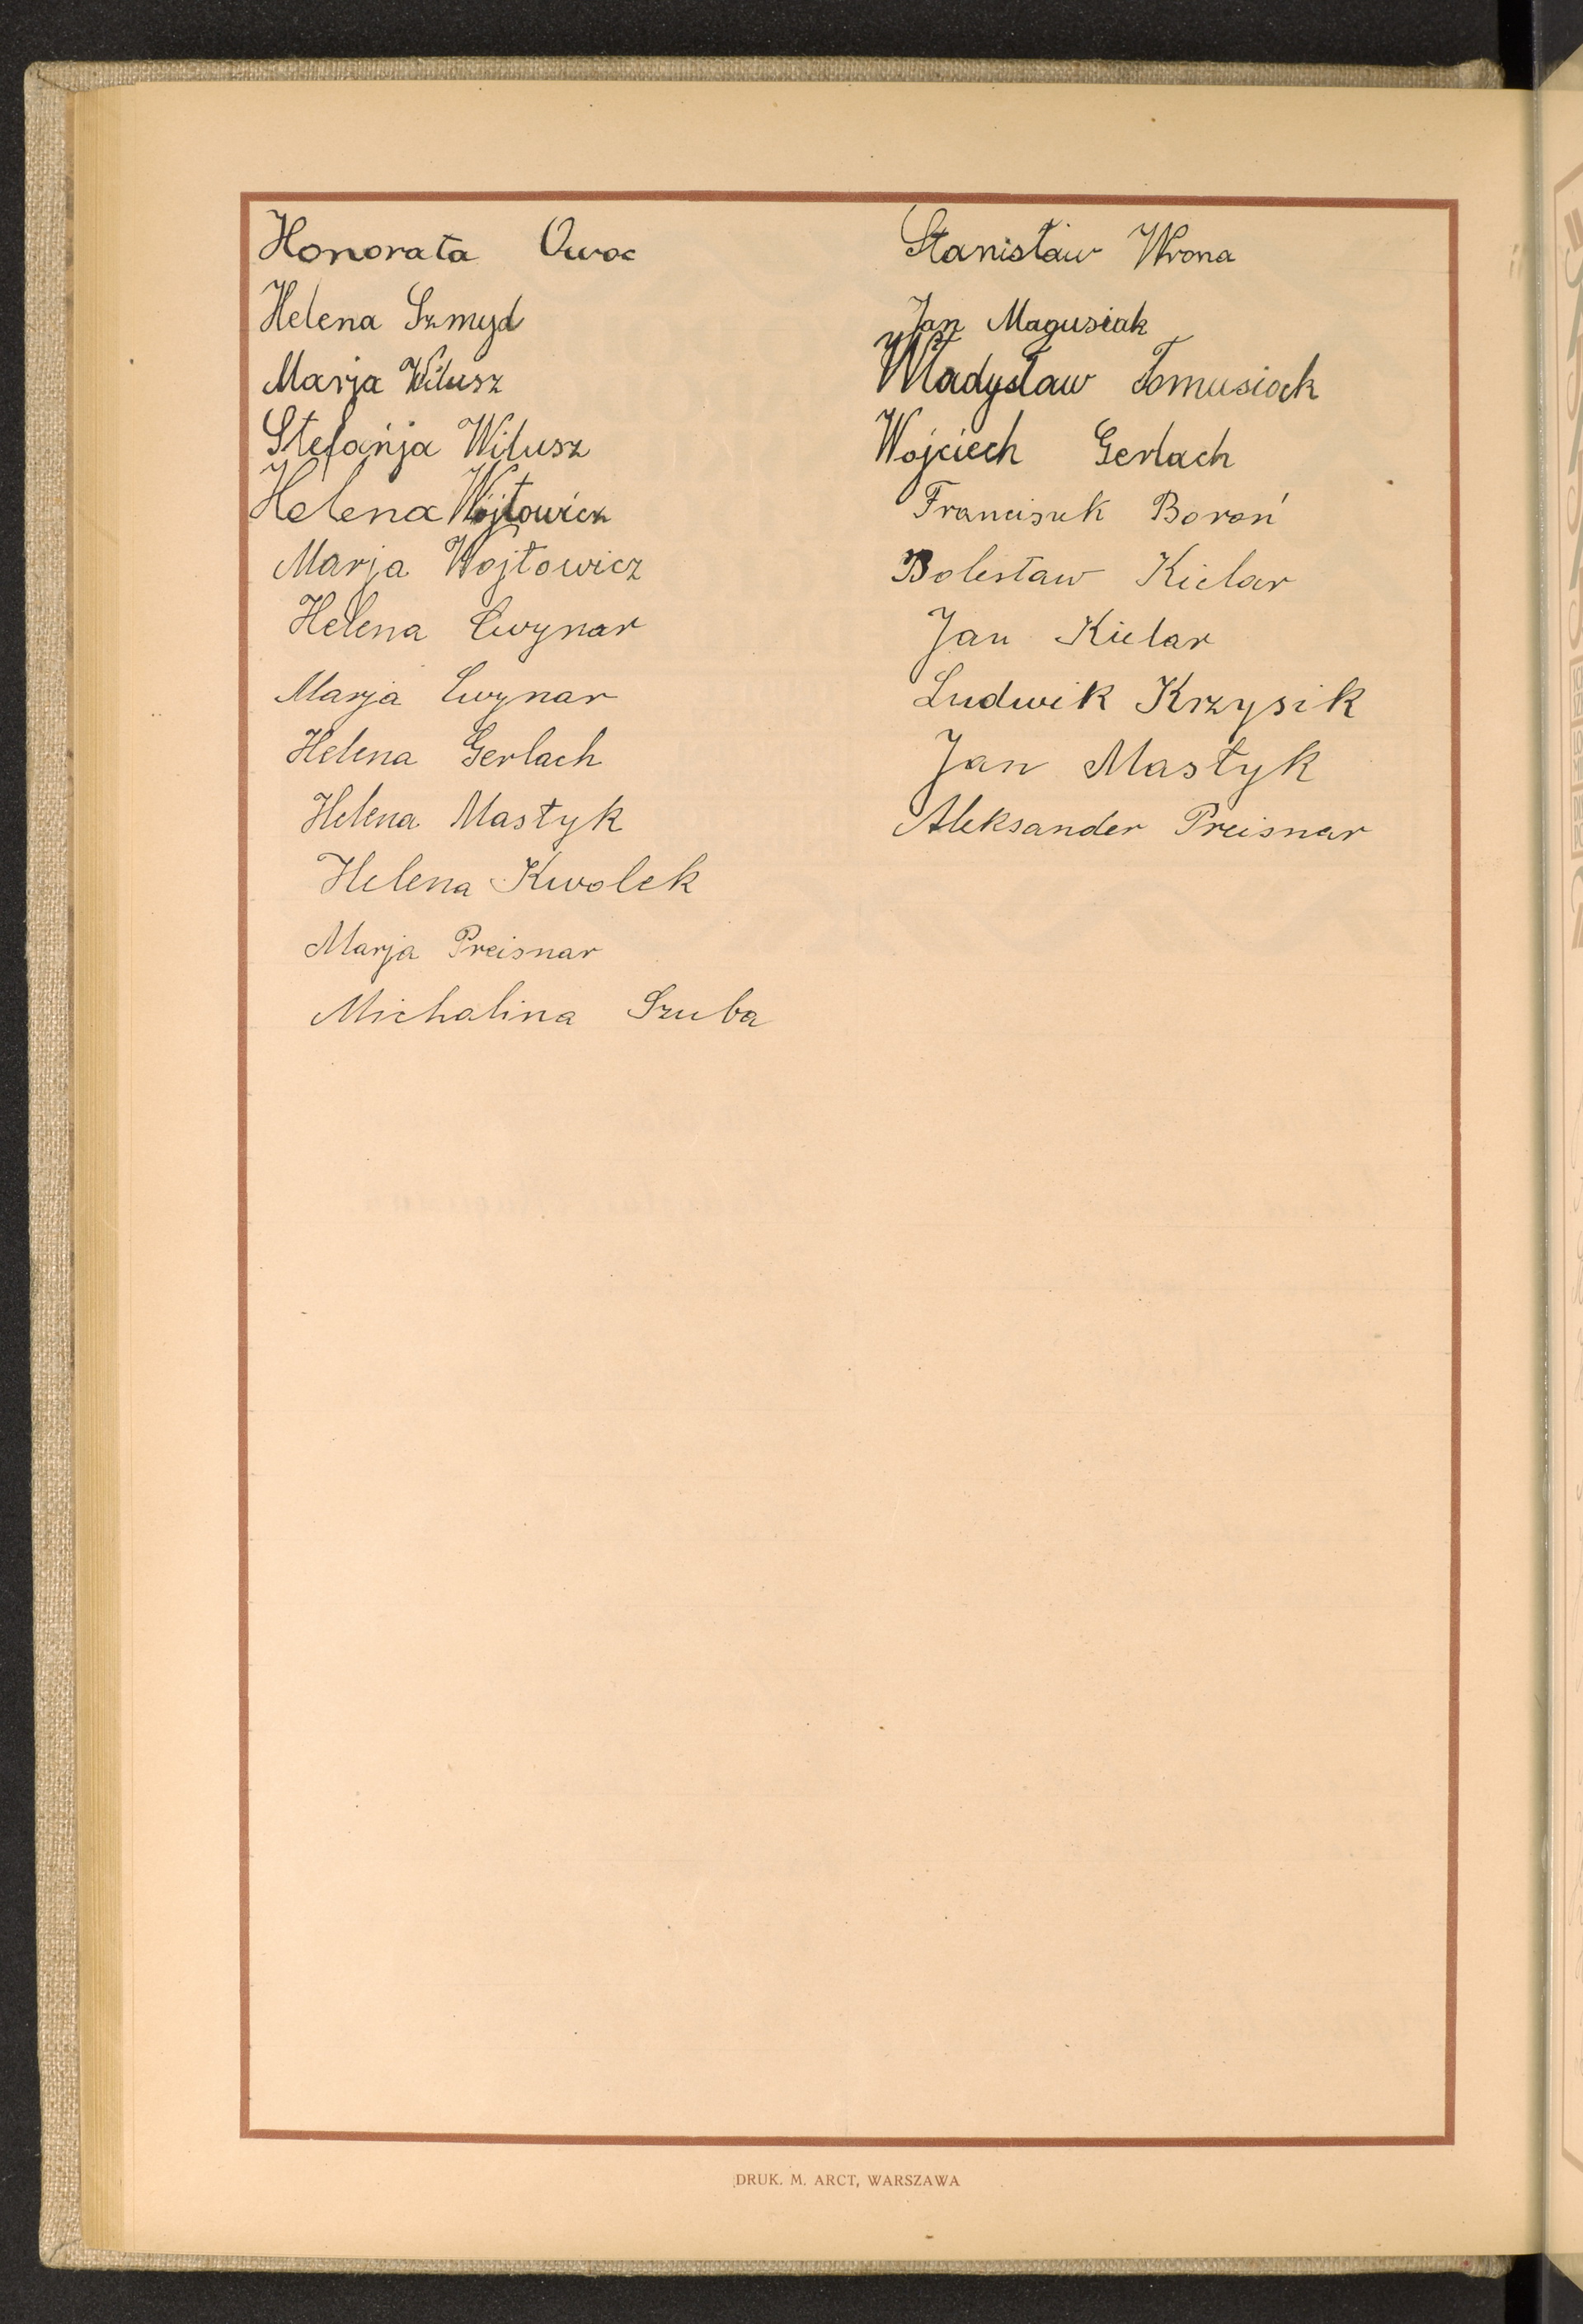 Honorata Owoc
Helena Szmyd
Marja Wilusz
Stefanja Wilusz
Helena Wójtowicz
Marja Wojtowicz
Helena Cwynar
Marja Cwynar
Helena Gerlach
Helena Mastyk
Helena Kwolek
Marja Preisnar
Michalina Szuba
Stanisław Wrona
Jan Magusiak
Władysław Tomusiak
Wojciech Gerlach
Franciszek Boroń
Bolesław Kielar
Jan Kielar
Ludwik Krzysik
Jan Mastyk
Aleksander Preisnar
DRUK. M. ARCT, WARSZAWA